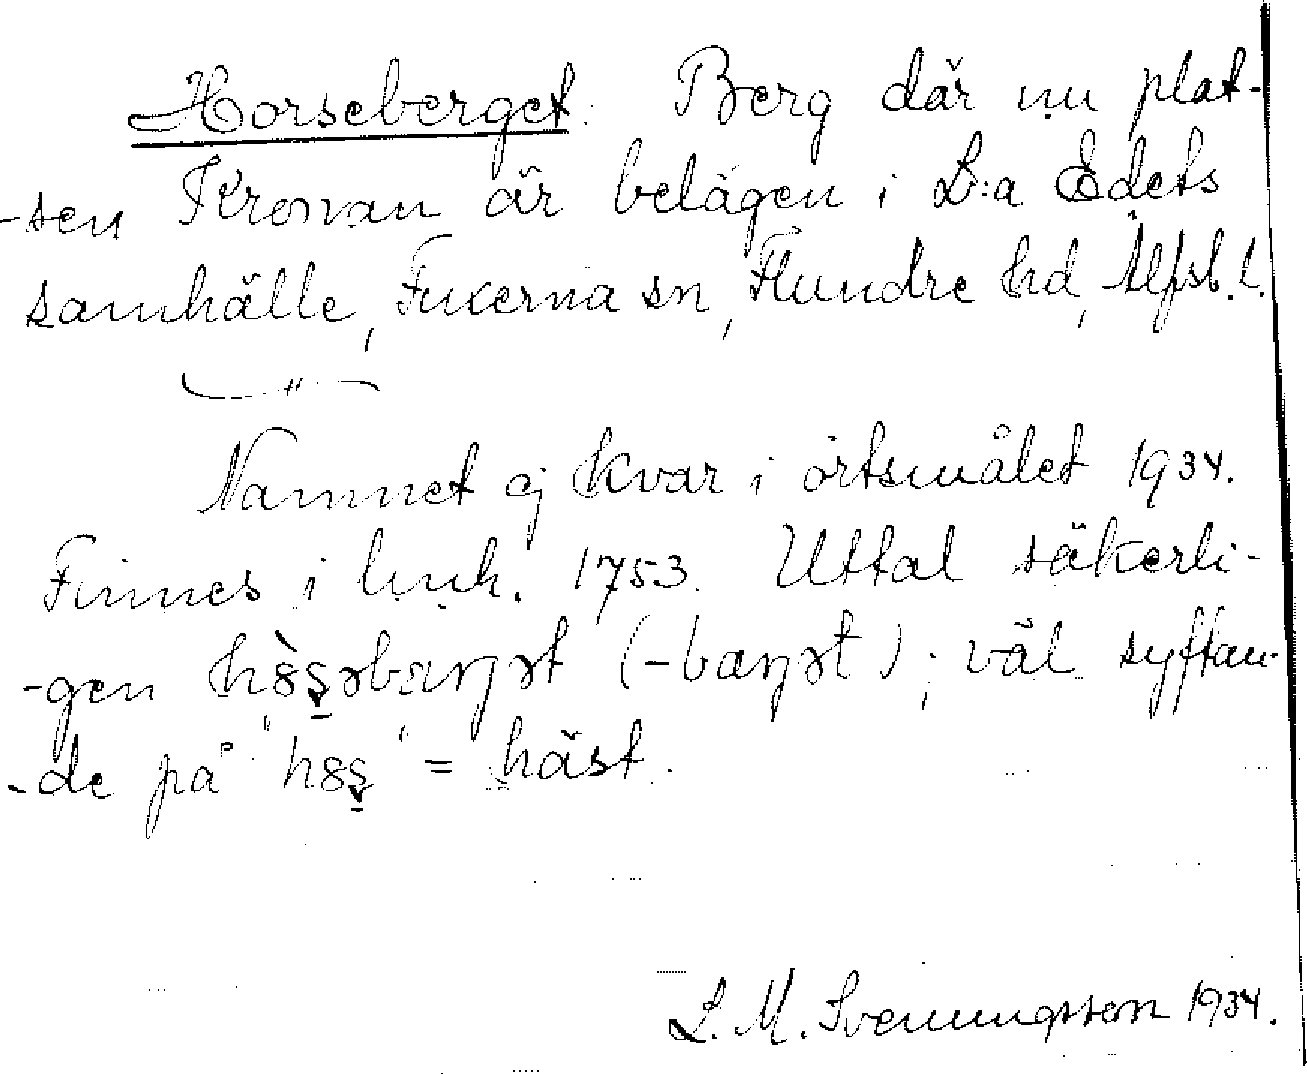 Horseberget. Berg där nu plat-
-sen Kronan är belägen i L:a Edets
samhälle, Fuxerna sn, Flundre hd, Älfsb. l.
— " —
Namnet ej kvar i ortsmålet 1934.
Finnes i 1753. Uttal säkerli-
-gen (-bæŋət); väl syftan-
-de på = häst.
L. M. Svenungsson 1934.